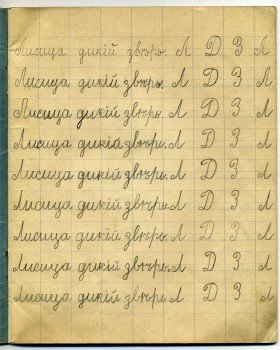 Лисица дикій звѣрь. Л Д З Л
Лисица дикій звѣрь. Л Д З Л
Лисица дикій звѣрь. Л Д З Л
Лисица дикіа звѣрь. Л Д З Л
Лисица дикій звѣрь. Л Д З Л
Лисица дикій звѣрь. Л Д З Л
Лисица дикій звѣрь. Л Д З Л
Лисица дикій звѣрь. Л Д З Л
Лисица дикій звѣрь. Л Д З Л